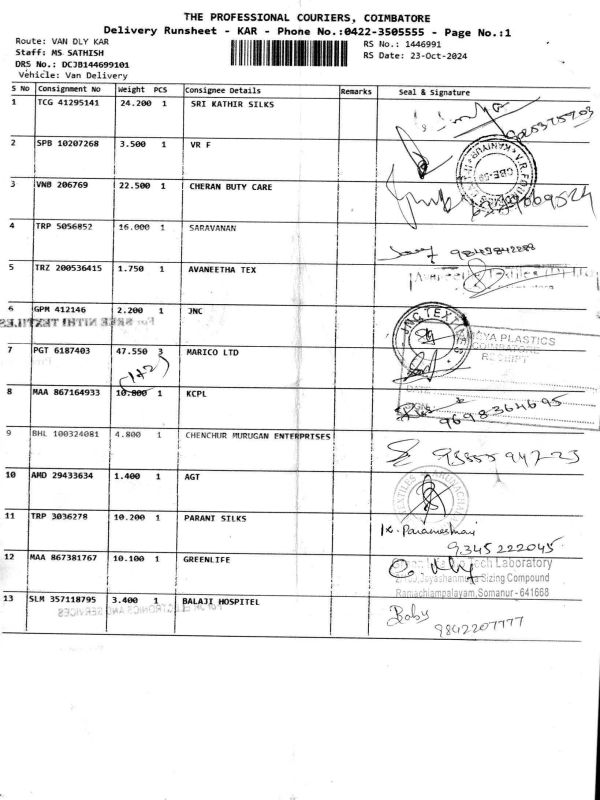 THE PROFESSIONAL COURIERS, COIMBATORE
Delivery Runsheet - KAR - Phone No.:0422-3505555 - Page No.:1
Route: VAN DLY KAR
RS No.: 1446991
Staff: MS SATHISH
RS Date: 23-Oct-2024
DRS No.: DCJB144699101
Vehicle: Van Delivery
S No Consignment No Weight PCS Consignee Details Remarks Seal & Signature
1 TCG 41295141 24.200 1 SRI KATHIR SILKS
2 SPB 10207268 3.500 1 VR F
3 VNB 206769 22.500 1 CHERAN BUTY CARE
4 TRP 5056852 16.000 1 SARAVANAN
5 TRZ 200536415 1.750 1 AVANEETHA TEX
6 GPM 412146 2.200 1 JNC
For SREE NITHI TEXTILES
JNC TEXTILES
7 PGT 6187403 47.550 3 MARICO LTD
(1+2)
PLASTICS
COIMBATORE
RECEIPT
DATE
8 MAA 867164933 10.800 1 KCPL
9698364695
9 BHL 100324081 4.800 1 CHENCHUR MURUGAN ENTERPRISES
10 AMD 29433634 1.400 1 AGT
11 TRP 3036278 10.200 1 PARANI SILKS
K. Parameshwari
9345222045
12 MAA 867381767 10.100 1 GREENLIFE
Tech Laboratory
Sizing Compound
Ramachiampalayam, Somanur - 641668
13 SLM 357118795 3.400 1 BALAJI HOSPITEL
Baby
9842207777